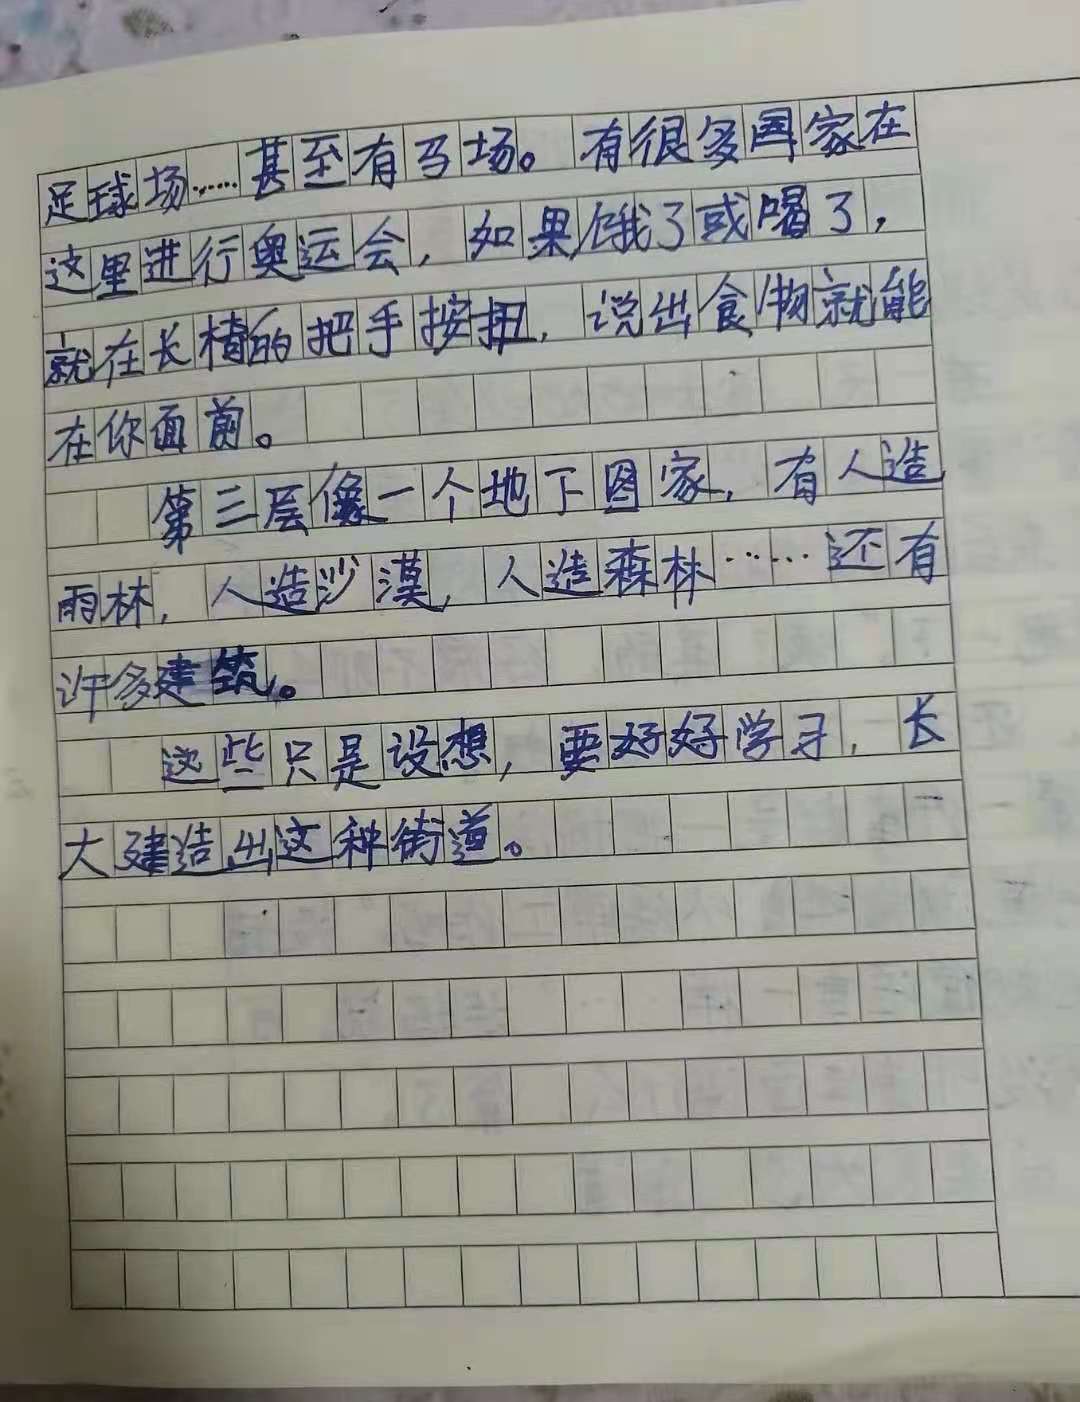 足球场……甚至有马场。有很多国家在
这里进行奥运会，如果饿了或喝了，
就在长椅的把手按扭，说出食物就能
在你面前。
第三层像一个地下图家，有人造
雨林，人造沙漠，人造森林……还有
许多建筑。
这些只是设想，要好好学习，长
大建造出这种街道。